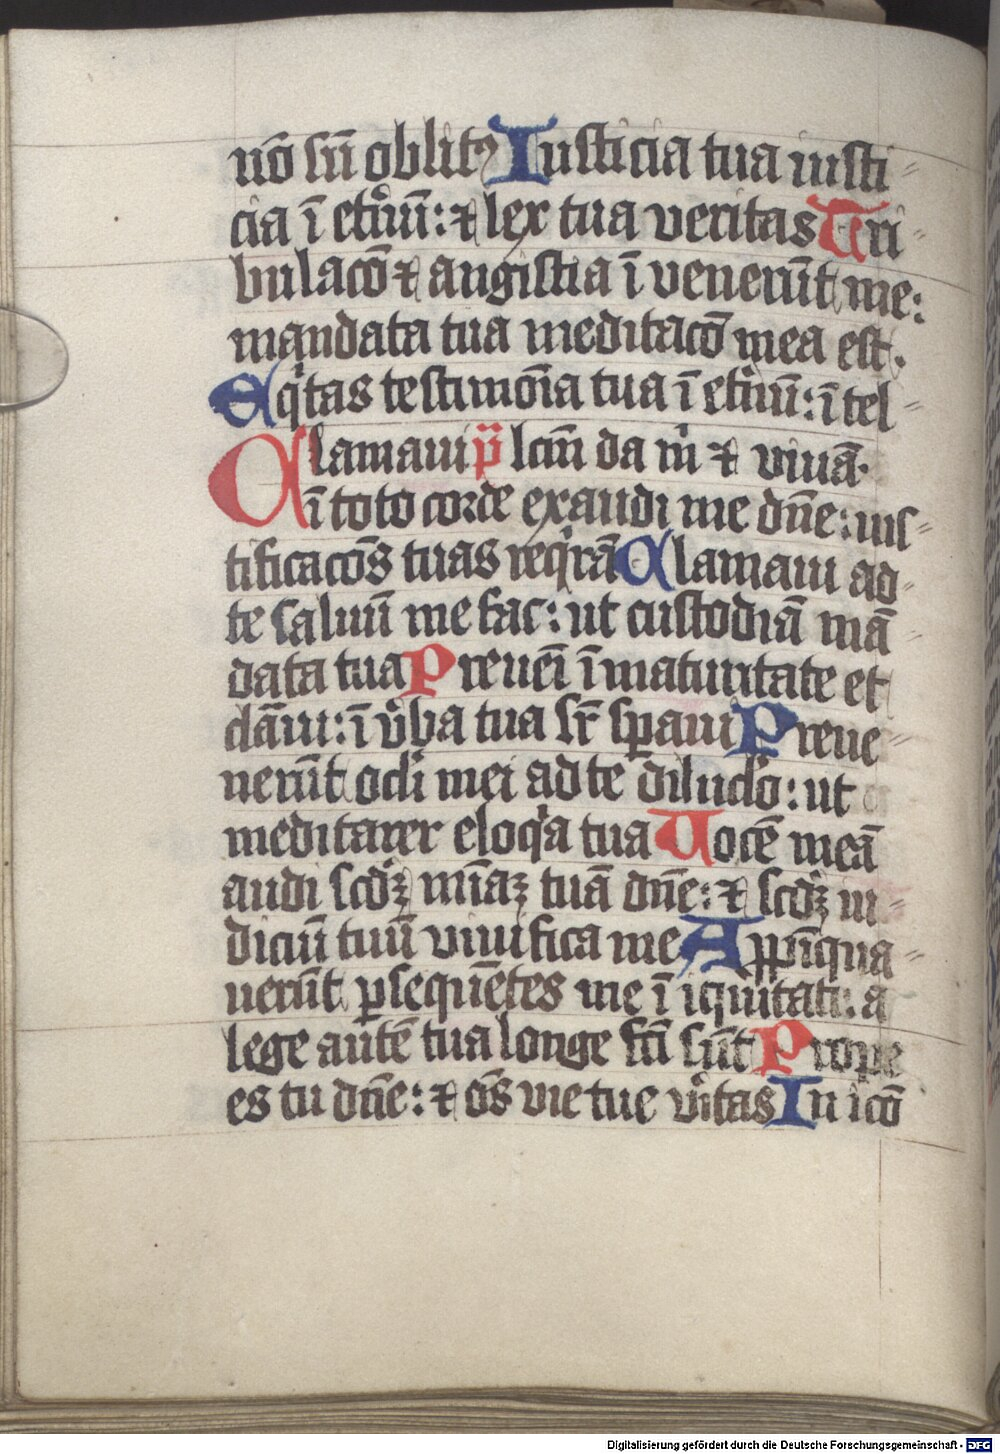 nō sū oblitꝰ Iusticia tua iusti
cia ī etnū: ⁊ lex tua veritas Tri
bulacō ⁊ angustia ī venerūt me:
mandata tua meditacō mea est.
Eqͥtas testimōia tua ī etnū: ī tel
lcm̄ da mͥ ⁊ viuā.
Clamaui p̄
ī toto corde exaudi me dn̄e: ius
tificacōs tuas reqͥrā Clamaui ad
te saluū me fac: ut custodiā mā
data tua Preuēi ī maturitate et
clāui: ī v̓ba tua sr̄ sꝑaui Preue
nerūt ocli mei ad te diluclo: ut
meditarer eloqͥa tua Vocē meā
audi scdꝫ mīaꝫ tuā dn̄e: ⁊ scdꝫ iu
diciū tuū viuifica me Apꝓīqua
uerūt ꝑsequētes me ī iqͥuitati: a
lege autē tua longe fcī sūt Prope
es tu dn̄e: ⁊ oēs vie tue vͥitas Inicō
Digitalisierung gefördert durch die Deutsche Forschungsgemeinschaft - DFG